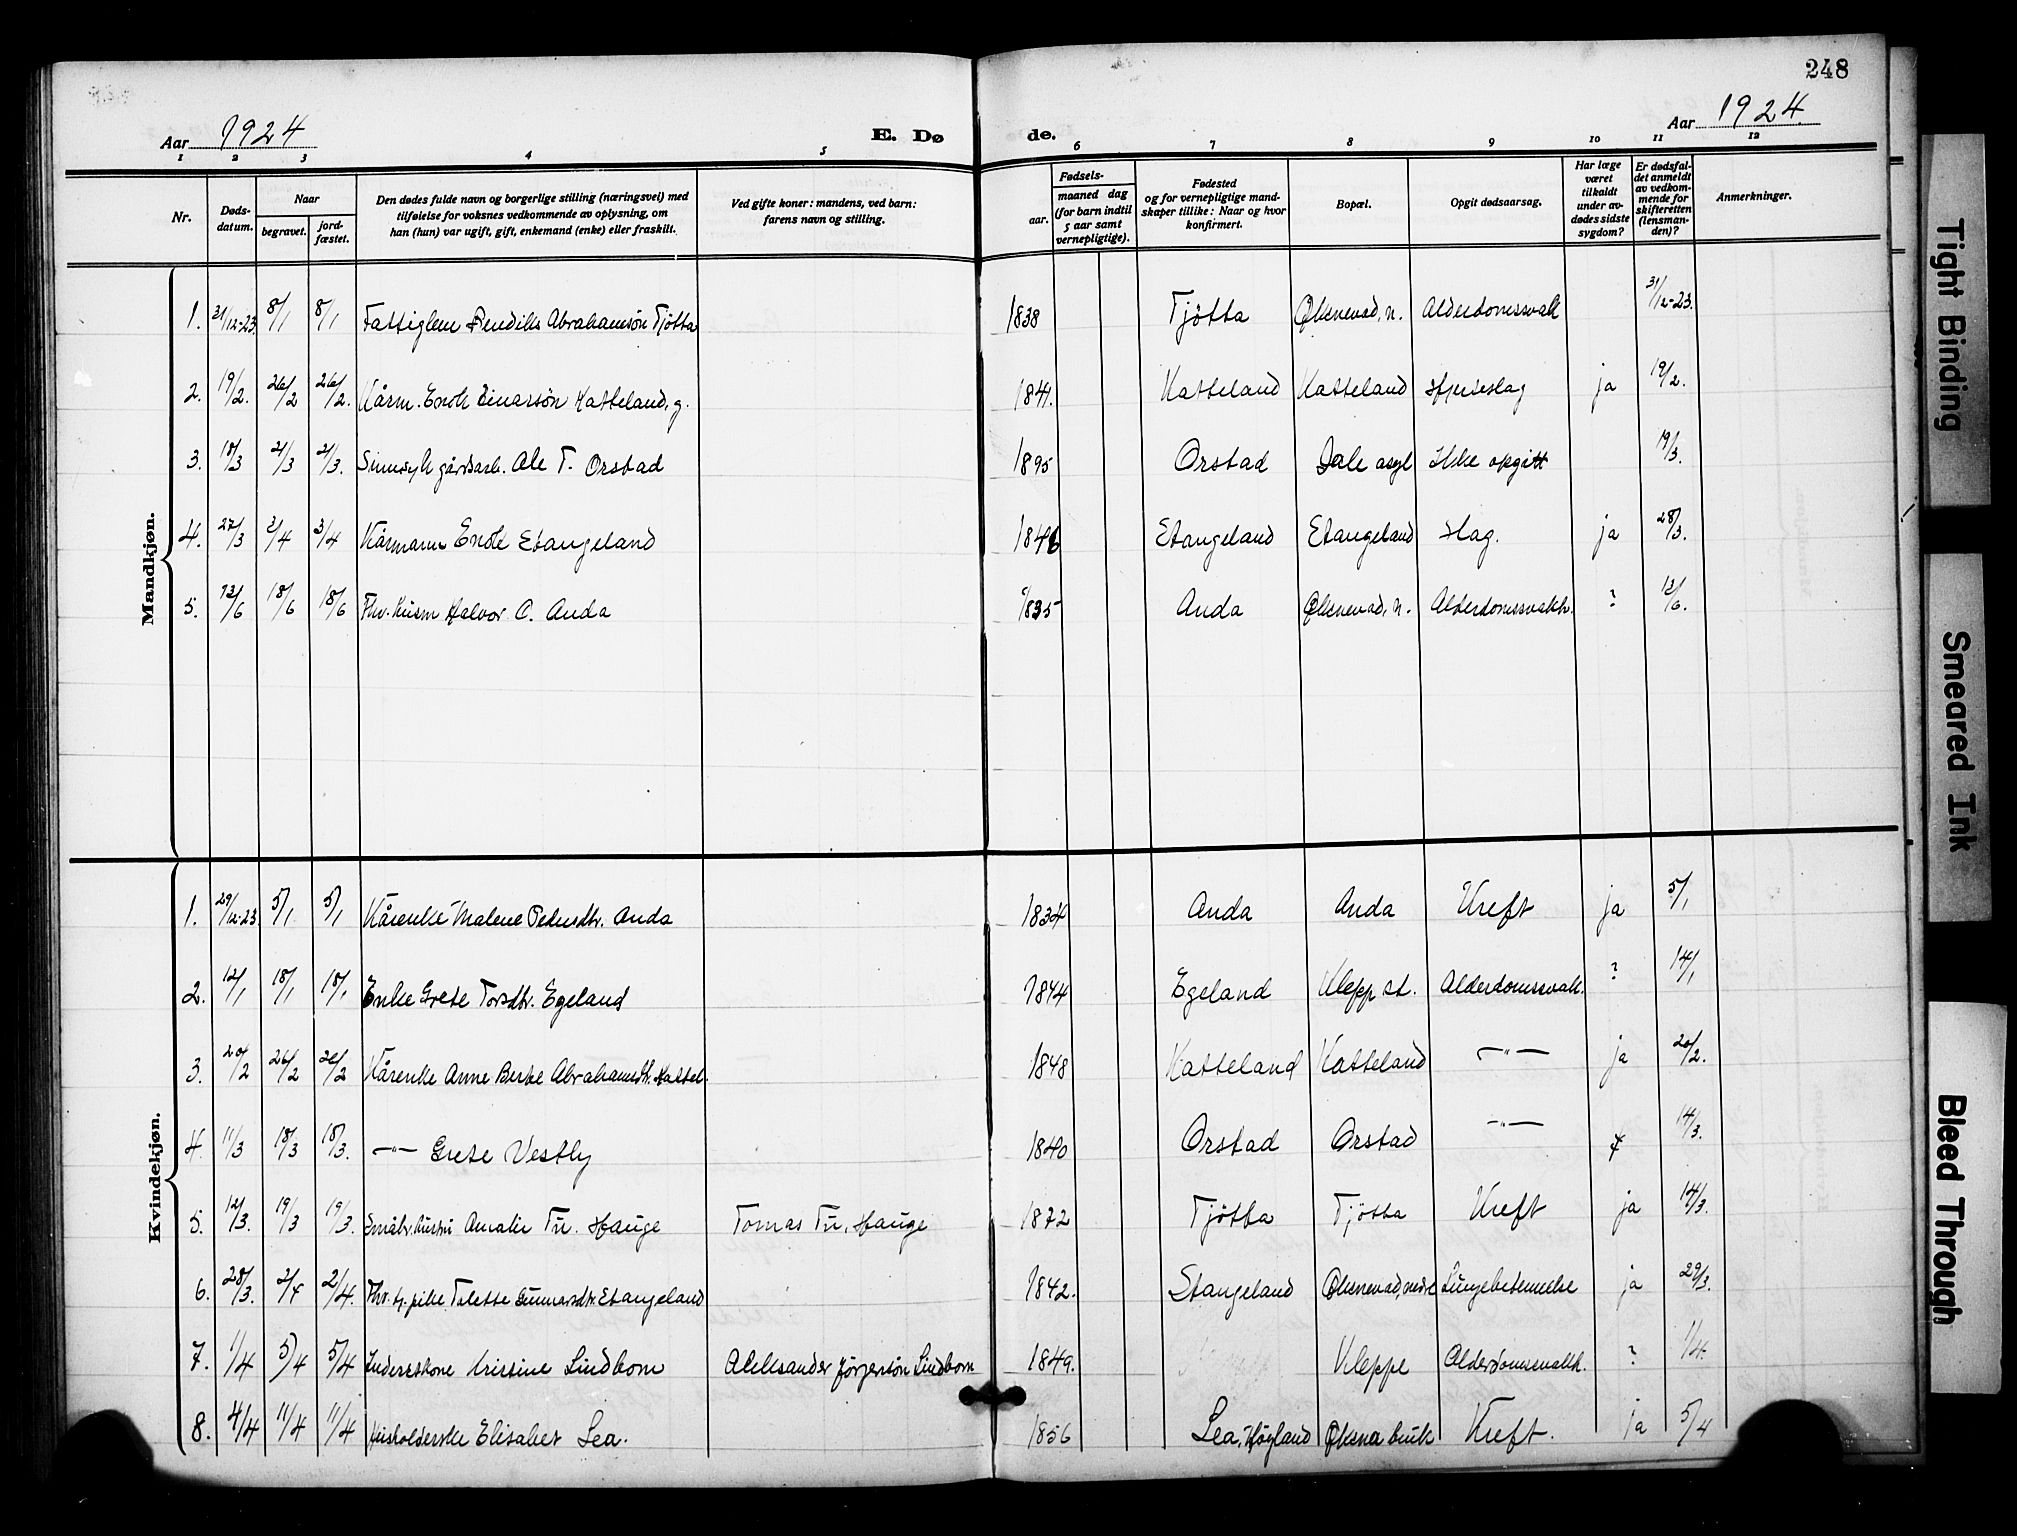 248
Aar 1924
E. Dø
de.
Aar 1924.
1 2 3 4 5 6 7 8 9 10 11 12
Nr.
Døds-
datum.
Naar
begravet.
jord-
fæstet.
Den dødes fulde navn og borgerlige stilling (næringsvei) med
tilføielse for voksnes vedkommende av oplysning, om
han (hun) var ugift, gift, enkemand (enke) eller fraskilt.
Ved gifte koner: mandens, ved barn:
farens navn og stilling.
Fødsels-
aar.
maaned dag
(for barn indtil
5 aar samt
vernepligtige).
Fødested
og for vernepligtige mand-
skaper tillike: Naar og hvor
konfirmert.
Bopæl.
Opgit dødsaarsag.
Har læge
været
tilkaldt
under av-
dødes sidste
sygdom?
Er dødsfal-
det anmeldt
av vedkom-
mende for
skifteretten
(lensman-
den)?
Anmerkninger.
Mandkjøn.
1. 31/12-23. 8/1 8/1 Abrahamsøn Tjøtta 1838 Tjøtta Øksnevad, n. Alderdomssvak 31/12-23.
2. 19/2. 26/2 26/2. Kårm. Enok Einarsøn Hatteland, g. 1841. Hatteland Hatteland Hjerteslag ja 19/2.
3. 18/3 21/3 21/3. Sinnsyk gårdsarb. Ole T. Orstad 1895 Orstad Dale asyl Ikke opgitt 19/3.
4. 27/3 3/4 3/4 Kårmann Enok Stangeland 1846 Stangeland Stangeland Slag. ja 28/3.
5. 13/6 18/6 18/6 Fhv. husm Halvor O. Anda 1835 Anda Øksnevad, n. Alderdomssvakh. ? 13/6.
Kvindekjøn.
1. 29/12-23. 5/1 5/1 Kårenke Malene Pedersdtr. Anda 1834 Anda Anda Kreft ja 5/1
2. 12/1 18/1 18/1 Enke Grete Torsdtr. Egeland 1844 Egeland Klepp st. Alderdomssvakh. ? 14/1
3. 20/2 26/2 26/2 Kårenke Anne Berte Abrahamsdtr. Hattel. 1848 Hatteland Hatteland —"— ja 20/2.
4. 11/3 18/3 18/3. —"— Grete Vestly 1840 Orstad Orstad —"— 14/3.
5. 12/3. 19/3 19/3. Småbr. hustru Amalie Tu. Hauge Tomas Tu. Hauge 1872 Tjøtta Tjøtta Kreft ja 14/3.
6. 28/3. 2/4 2/4. Fhv. tj. pike Talette Gunnarsdtr. Stangeland 1842. Stangeland Øksnevad, nedre Lungebetennelse ja 29/3.
7. 1/4 5/4 5/4 Inderstkone Kristine Lindbom Aleksander Jørgensøn Lindbom 1849. Kleppe Alderdomssvakh. ? 1/4.
8. 4/4 11/4 11/4 Husholderske Elisabet Lea. 1856 Lea, Høyland Øksna bruk Kreft. ja 5/4
Tight Binding
Smeared Ink
Bleed Through